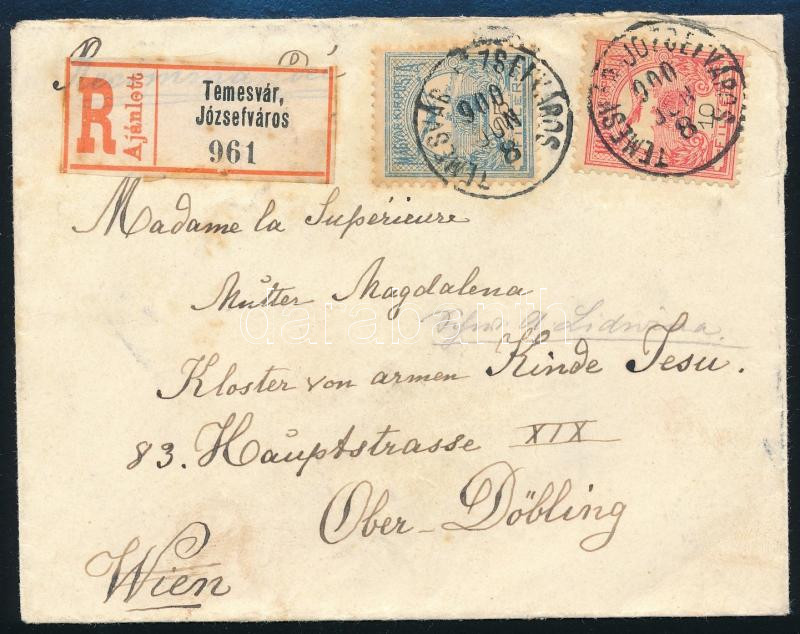 Recommandé
R
Ajánlott
Temesvár,
Józsefváros
961
TEMESVÁR-JÓZSEFVÁROS
900
JUN
8
TEMESVÁR-JÓZSEFVÁROS
900
JUN
8
10
Madame la Supérieure
Mutter Magdalena
Kloster von armen Kinde Jesu.
83. Hauptstrasse XIX
Ober-Döbling
Wien
darabanth